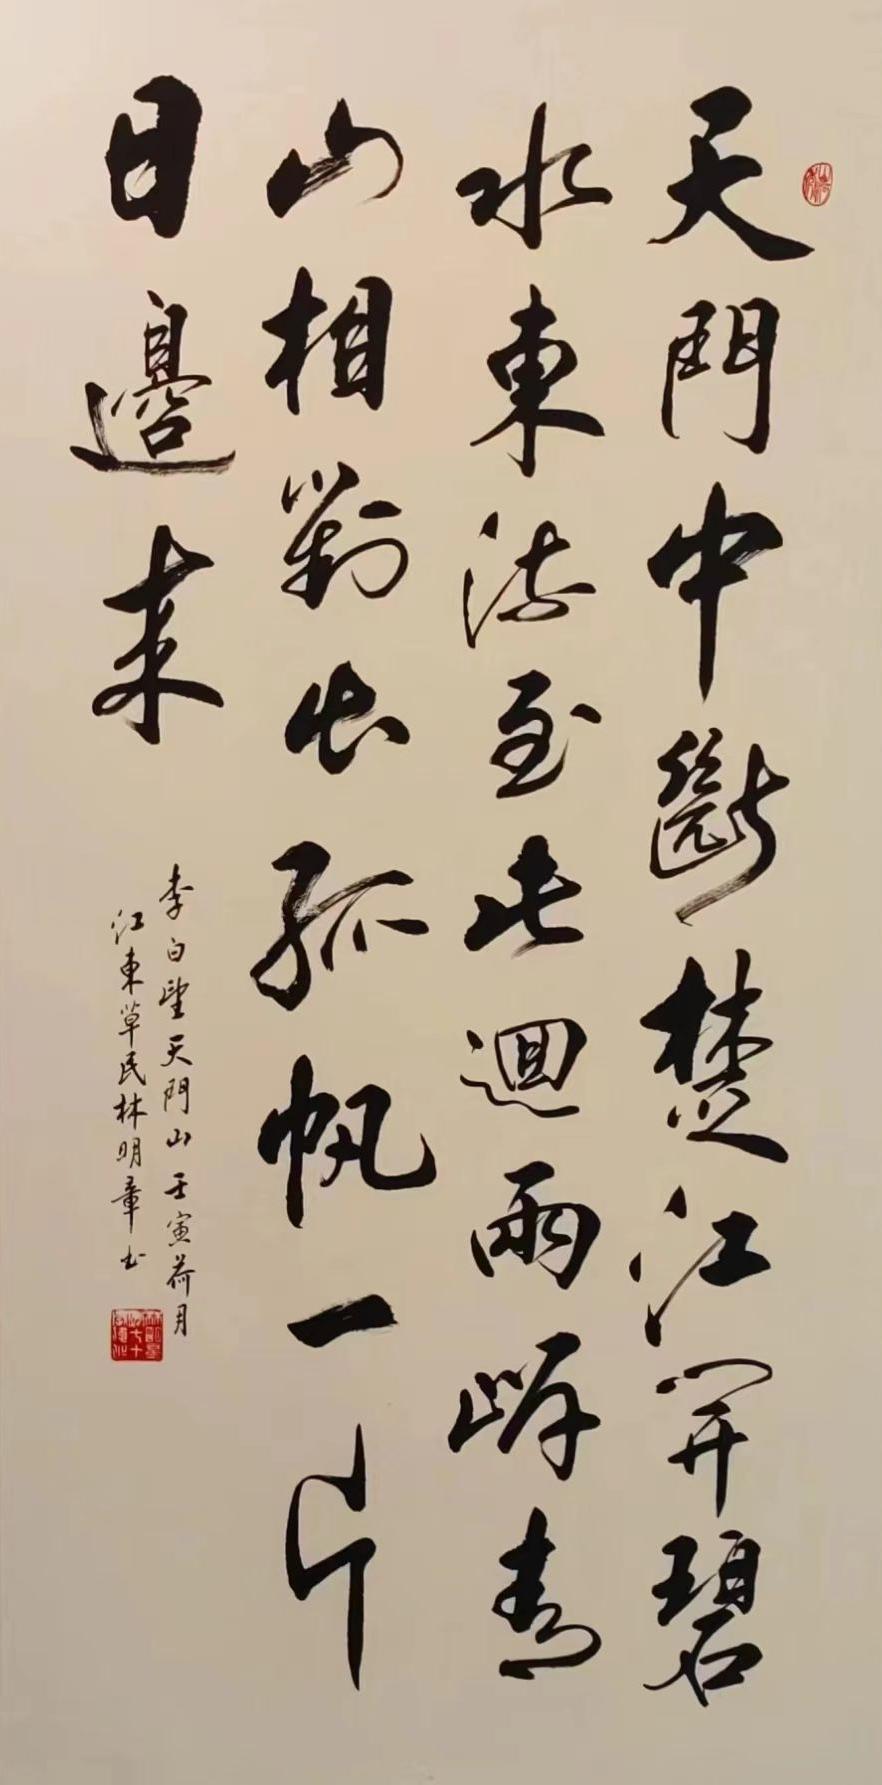 天門中斷楚江開碧
水東流至此迴兩岸青
山相對出孤帆一片
日邊來
李白望天門山壬寅荷月
江東草民林明章书